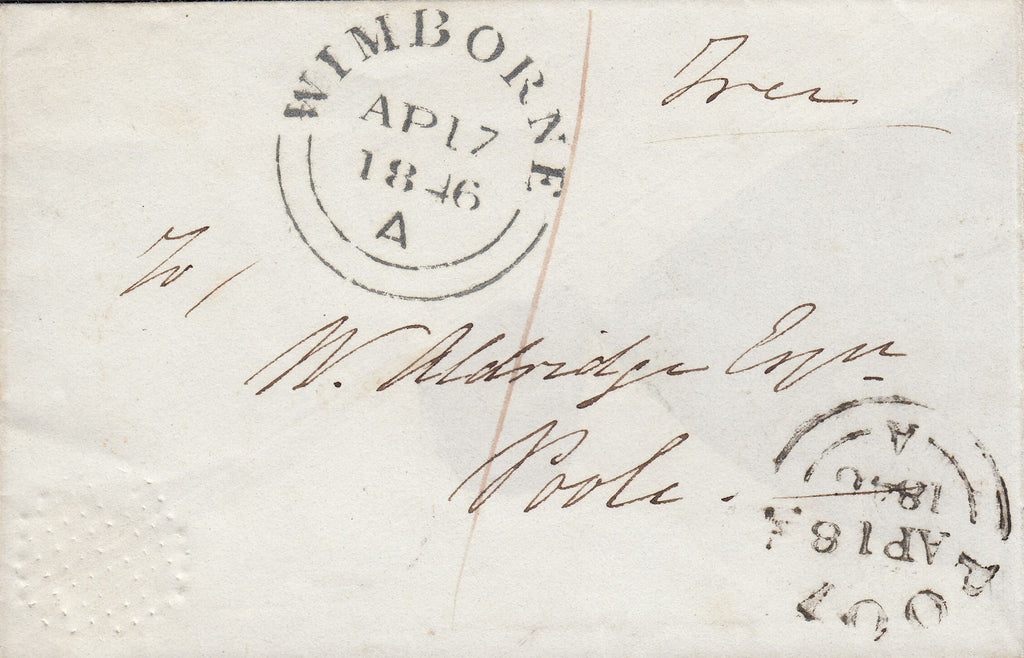 WIMBORNE
AP 17
1846
A
Free
To,
W. Aldridge Esqr
Poole.
POOLE
AP 18
1846
A